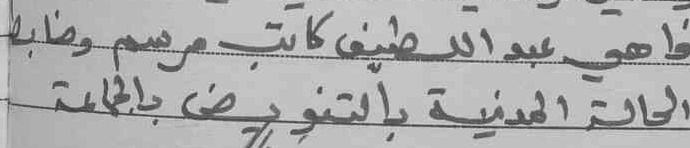 فاهي عبد اللطيف كاتب مرسم وضابط
الحالة المدنية بالتفويض بالجماعة